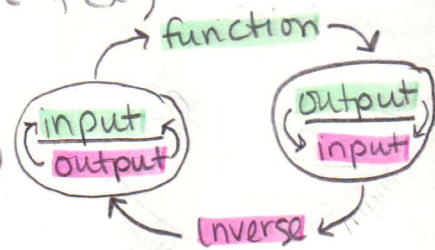 function
input
output
output
input
inverse